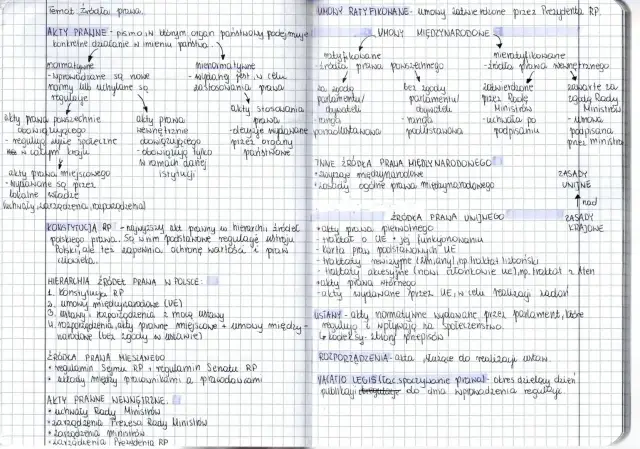 Temat: Źródła prawa.
AKTY PRAWNE - pismo, w którym organ państwowy podejmuje
konkretne działanie w imieniu państwa.
normatywne
- wprowadzane są nowe
normy lub uchylane są
regulacje
nienormatywne
- wydany jest w celu
zastosowania prawa
akty prawa powszechnie
obowiązującego
- regulują życie społeczne
w całym kraju
akty prawa
wewnętrznie
obowiązującego
- obowiązują tylko
w ramach danej
instytucji
akty stosowania
prawa
- decyzje wydawane
przez organy
państwowe
akty prawa miejscowego
- wydawane są przez
lokalne władze
uchwały, zarządzenia, rozporządzenia)
KONSTYTUCJA RP - najwyższy akt prawny w hierarchii źródeł
polskiego prawa. Są w nim podstawowe regulacje ustroju
Polski, ale też zapewnia ochronę wartości i praw
człowieka.
HIERARCHIA ŹRÓDEŁ PRAWA W POLSCE:
1. konstytucja RP
2. umowy międzynarodowe (UE)
3. ustawy i rozporządzenia z mocą ustawy
4. rozporządzenia, akty prawne miejscowe + umowy między-
narodowe (bez zgody w ustawie)
ŹRÓDŁA PRAWA MIESZANEGO
• regulamin Sejmu RP + regulamin Senatu RP
• układy między pracownikami a pracodawcami
AKTY PRAWNE WEWNĘTRZNE:
• uchwały Rady Ministrów
• zarządzenia Prezesa Rady Ministrów
• zarządzenia ministrów
• zarządzenia Prezydenta RP
UMOWY RATYFIKOWANE - umowy zatwierdzone przez Prezydenta RP.
UMOWY MIĘDZYNARODOWE
ratyfikowane
- źródła prawa powszechnego
nieratyfikowane
- źródła prawa wewnętrznego
za zgodą
parlamentu/
obywateli
- ranga
ponadustawowa
bez zgody
parlamentu/
obywateli
- ranga
podustawowa
zatwierdzone
przez Radę
Ministrów
- uchwała po
podpisaniu
zawarte za
zgodą Rady
Ministrów
- umowa
podpisana
przez ministra
INNE ŹRÓDŁA PRAWA MIĘDZYNARODOWEGO
• zwyczaje międzynarodowe
• zasady ogólne prawa międzynarodowego
ZASADY
UNIJNE
nad
ZASADY
KRAJOWE
ŹRÓDŁA PRAWA UNIJNEGO
• akty prawa pierwotnego
- traktat o UE + jej funkcjonowaniu
- karta praw podstawowych UE
- traktaty rewizyjne (zmiany), np. traktat lizboński
- traktaty akcesyjne (nowi członkowie UE), np. traktat z Aten
• akty prawa wtórnego
- akty wydawane przez UE, w celu realizacji zadań
USTAWY - akty normatywne wydawane przez parlament, które
regulują i wpływają na społeczeństwo.
↳ kodeksy - zbiory przepisów
ROZPORZĄDZENIA - akta służące do realizacji ustaw.
VACATIO LEGIS (łac. spoczywanie prawa) - okres dzielący dzień
publikacji do dnia wprowadzenia regulacji.